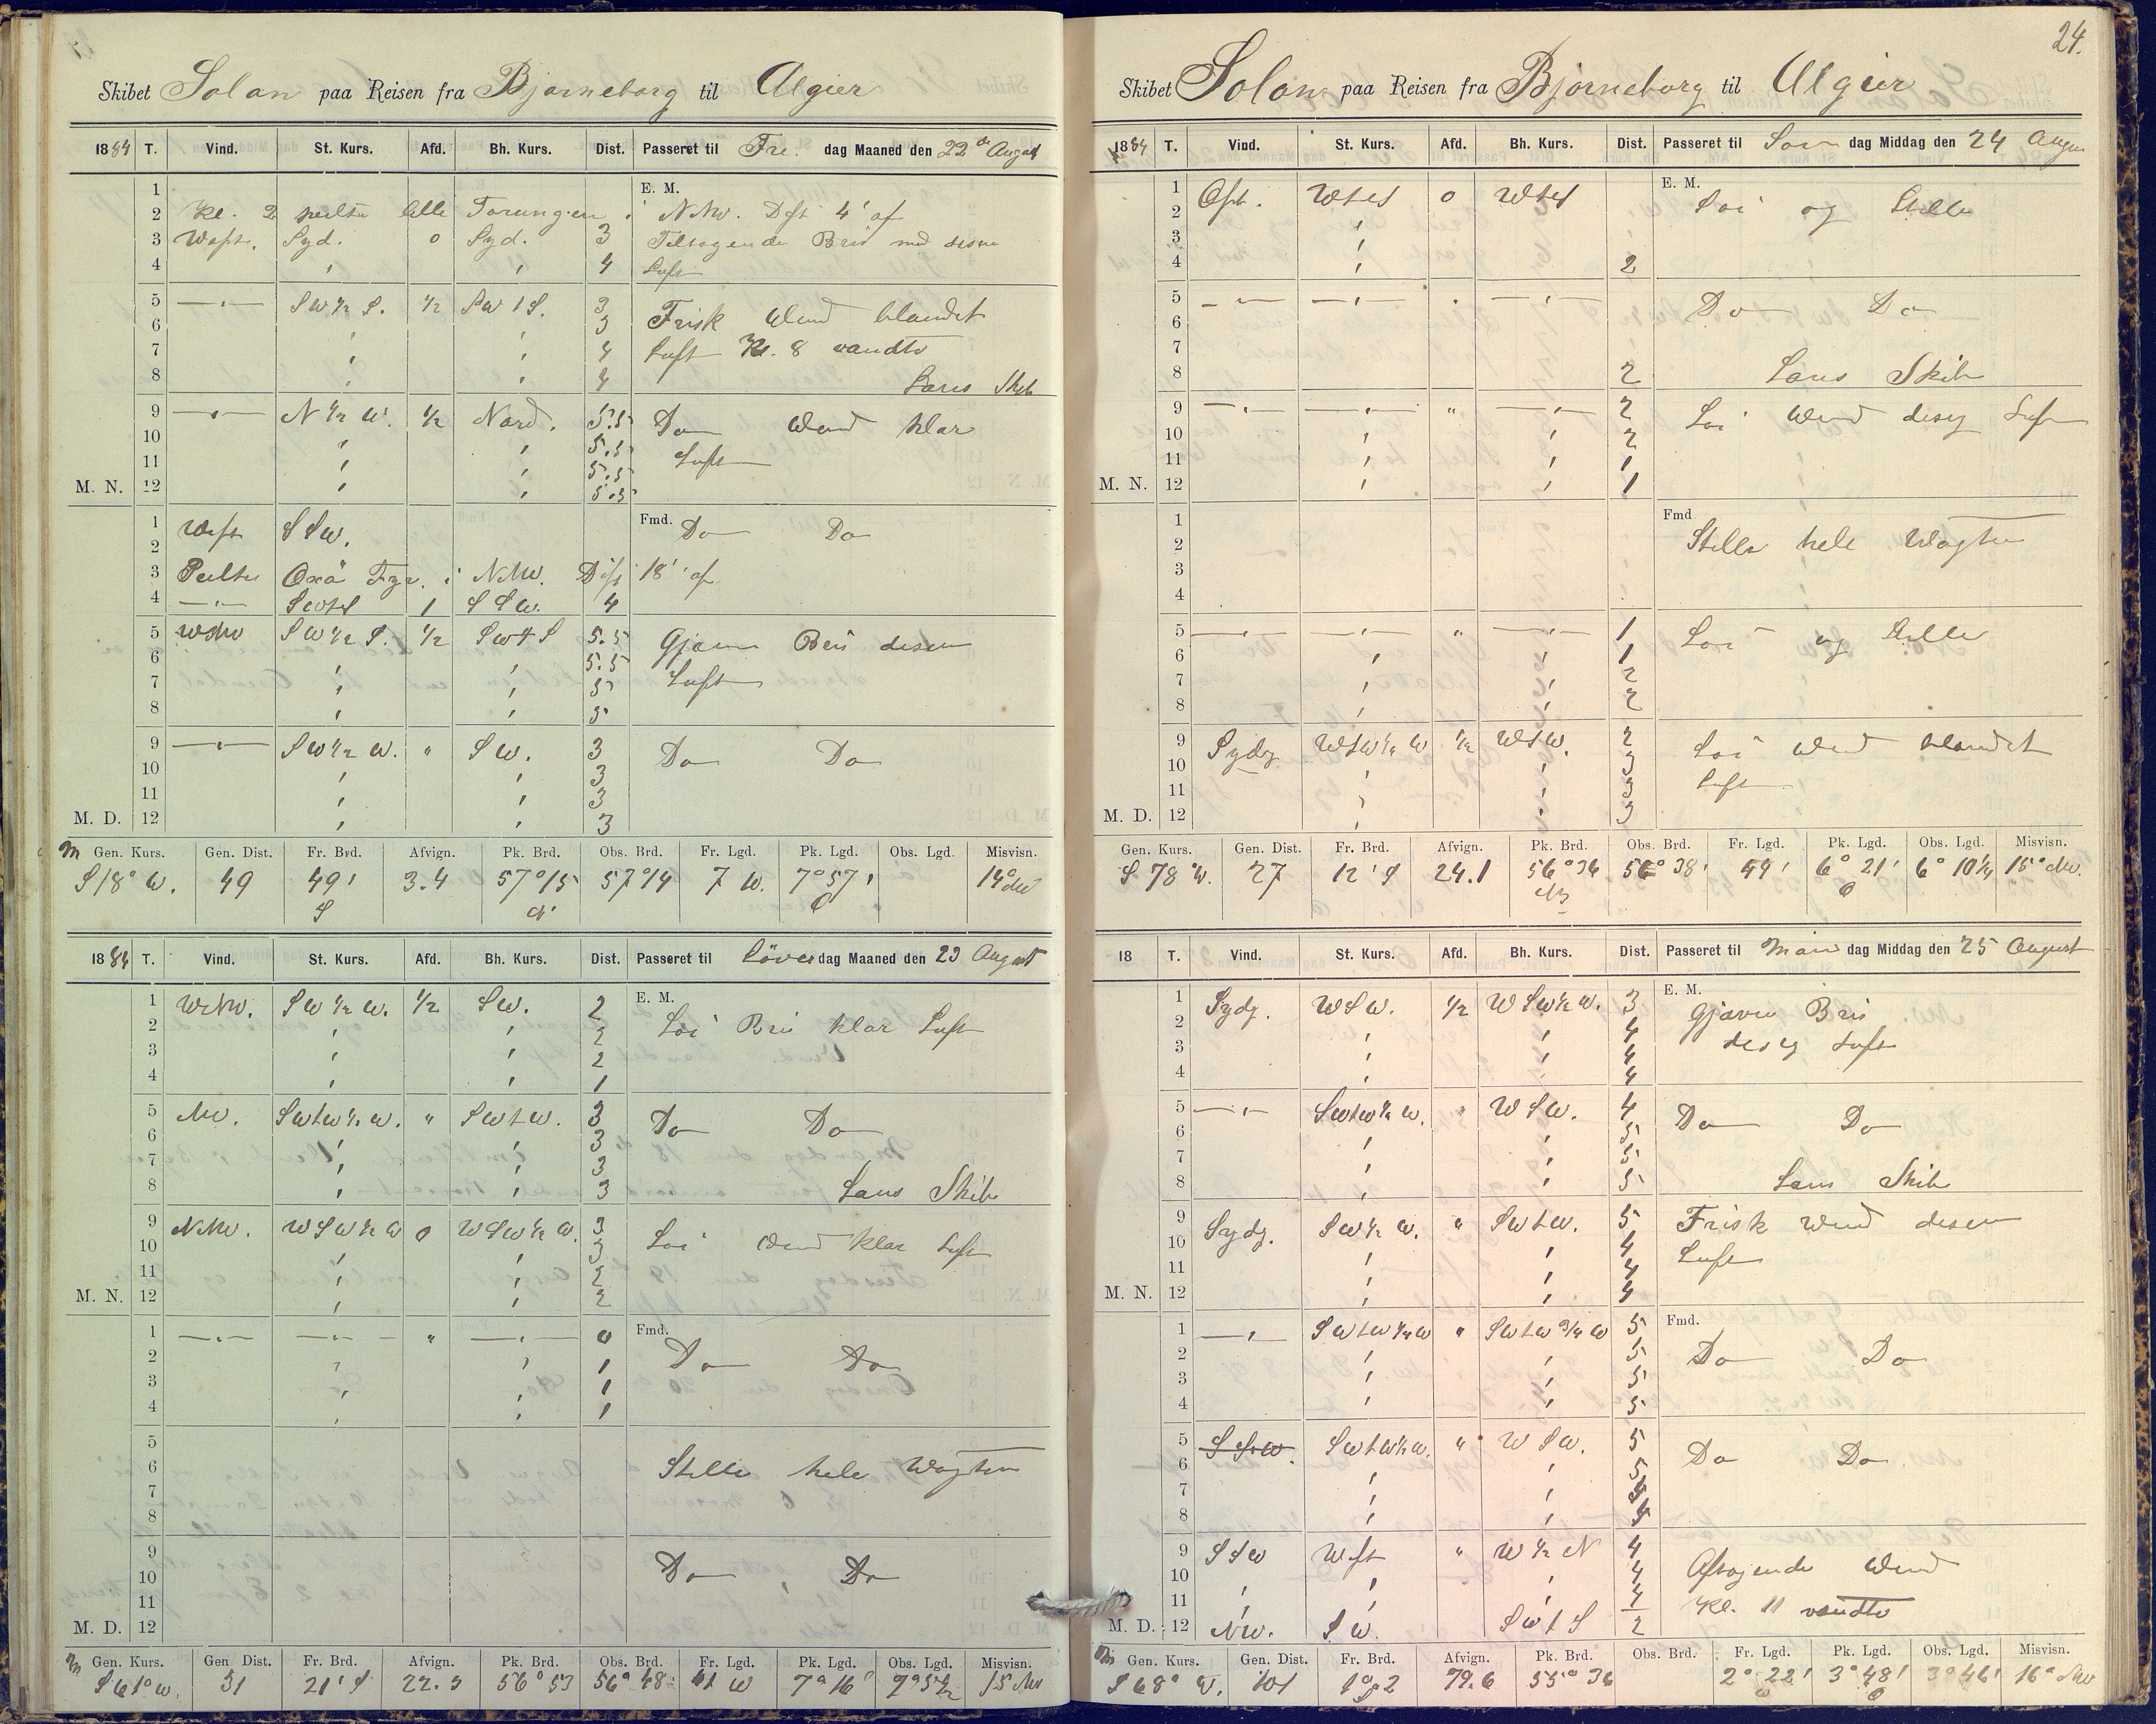 Skibet Solon paa Reisen fra Bjørneborg til Algier
1884 T. Vind. St. Kurs. Afd. Bh. Kurs. Dist. Passeret til Fre. dag Maaned den 22de August
1 E. M.
2 Kl. 2 peilte Lille Torungen i NNW. Dist 4' af
3 West. Syd. o Syd. 3 Tiltagende Bris med disen
4 " " 4 Luft
5 —"— SW½S. ½ SW t S. 3 Frisk Wind blandet
6 " " 3
7 " " 4 Luft Kl. 8 vandte
8 " " 4 Læns Skib
9 —"— N½W. ½ Nord. 5.5 Do Wind klar
10 " " 5.5 Luft
11 " " 5.5
M. N. 12 " " 5.5
1 West SSW. Fmd. Do Do
2
3 Peilte Oxö Fyr. i NNW. Dist 18' af
4 —"— SWtS 1 SSW. 4
5 WNW SW½S. ½ SWtS 5.5 Gjævn Bris disen
6 " " 5.5
7 " " 5 Luft
8 " " 5
9 —"— SW½W. " SW. 3 Do Do
10 " " 3
11 " " 3
M. D. 12 " " 3
M Gen. Kurs. Gen. Dist. Fr. Brd. Afvign. Pk. Brd. Obs. Brd. Fr. Lgd. Pk. Lgd. Obs. Lgd. Misvisn.
S18°W. 49 49' S 3.4 57°15 N 57°14 7 W. 7°57' O 14° NW
1884 T. Vind. St. Kurs. Afd. Bh. Kurs. Dist. Passeret til Löver dag Maaned den 23 August
1 WNW. SW½W. ½ SW. 2 E. M.
2 " " 2 Loi Bris klar Luft
3 " " 2
4 " " 1
5 NW. SWtW½W. " SWtW. 3 Do Do
6 " " 3
7 " " 3
8 " " 3 Læns Skib
9 NNW. WSW½W o WSW½W. 3 Loi Wind klar Luft
10 " " 3
11 " " 2
M. N. 12 " " 2
1 —"— —"— " —"— 0 Fmd.
2 " " 1 Do Do
3 " " 1
4 " " 1
5
6 Stille hele Wagten
7
8
9
10 Do Do
11
M. D. 12
M Gen. Kurs. Gen Dist. Fr. Brd. Afvign. Pk. Brd. Obs. Brd. Fr. Lgd. Pk. Lgd. Obs. Lgd. Misvisn.
S61°W. 31 21'S 22.3 56°53 56°48 41 W 7°16' 15° NW
24.
Skibet Solon paa Reisen fra Bjørneborg til Algier
1884 T. Vind. St. Kurs. Afd. Bh. Kurs. Dist. Passeret til Søn dag Middag den 24 Augus
1 Ost. WtS o WtS E. M. Loi og Stille
2 "
3 "
4 " 2
5 —"— —"— " —"— Do Do
6
7
8 2 Læns Skib
9 —"— —"— " —"— 2 Loi Wind disig Luft
10 " " 2
11 " " 1
M. N. 12 " " 1
1 Fmd
2 Stille hele Wagten
3
4
5 —"— —"— " —"— 1 Loi og Stille
6 " " 1
7 " " 2
8 " " 2
9 Sydy WSW½W ½ WSW. 2 Loi Wind blandet
10 " " 3
11 " " 3 Luft
M. D. 12 " " 3
Gen. Kurs. Gen. Dist. Fr. Brd. Afvign. Pk. Brd. Obs. Brd. Fr. Lgd. Pk. Lgd. Obs. Lgd. Misvisn.
S 78°W. 27 12'S 24.1 56°36 56°38' 44' 6°21' O 6°10¼ 15° NW.
18 T. Vind. St. Kurs. Afd. Bh. Kurs. Dist. Passeret til Man dag Middag den 25 August
1 Sydy. WSW. ½ WSW½W. 3 E. M. Gjævn Bris
2 " " 4
3 " " 4 disig Luft
4 " " 4
5 —"— SWtW½W. " WSW. 4 Do Do
6 " " 5
7 " " 5
8 " " 5 Læns Skib
9 Sydy. SW½W. " SWtW. 5 Frisk Wind disen
10 " " 4
11 " " 4 Luft
M. N. 12 " " 4
1 —"— SWtW¼W " SWtW¾W 5 Fmd.
2 " " 5 Do Do
3 " " 5
4 " " 5
5 SSW. SWtW½W. " WSW. 5 Do Do
6 " " 5
7 " "
8 " "
9 SSW West " W½N 4 Aftagende Wind
10 " " " 4
11 " " " 4 Kl. 11 vandte
M. D. 12 NW. SW. SWtS 2
M Gen. Kurs. Gen. Dist. Fr. Brd. Afvign. Pk. Brd. Obs. Brd. Fr. Lgd. Pk. Lgd. Obs. Lgd. Misvisn.
S 68°W. 101 1°2 S 79.6 55°36 2°22' W 3°48' O 3°46' 16° NW